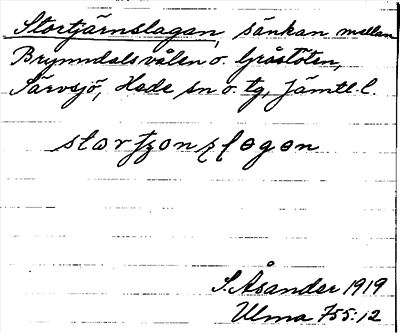 Stortjärnslagan, sänkan mellan
Brynndalsvålen o. Gråstöten,
Särvsjö, Hede sn o. tg, Jämtl. l.
S. Åsander 1919
Ulma 755:12